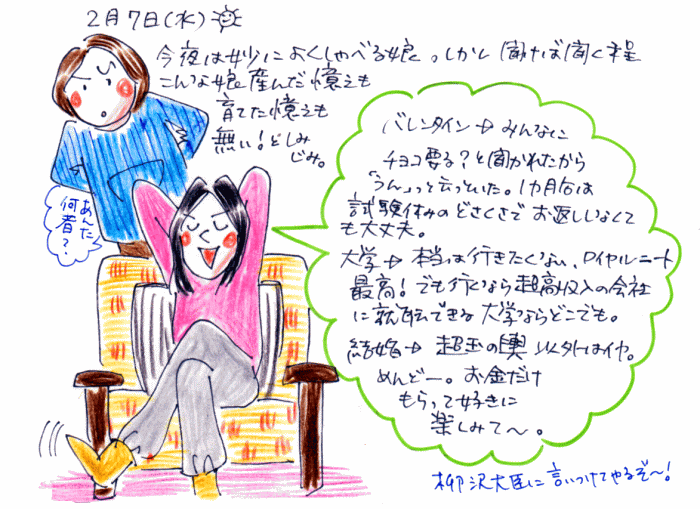 2月7日(水)
今夜は妙によくしゃべる娘。しかし聞けば聞く程
こんな娘産んだ憶えも
育てた憶えも
無い！としみ
じみ。
あんた
何者？
バレンタイン→みんなに
チョコ要る？と聞かれたから
「うん」っと云っといた。1カ月后は
試験休みのどさくさでお返ししなくて
も大丈夫。
大学→本当は行きたくない、ロイヤルニート
最高！でも行くなら超高収入の会社
に就職できる大学ならどこでも。
結婚→超玉の輿以外はイヤ。
めんどー。お金だけ
もらって好きに
楽しみて〜。
柳沢大臣に言いつけてやるぞ〜！